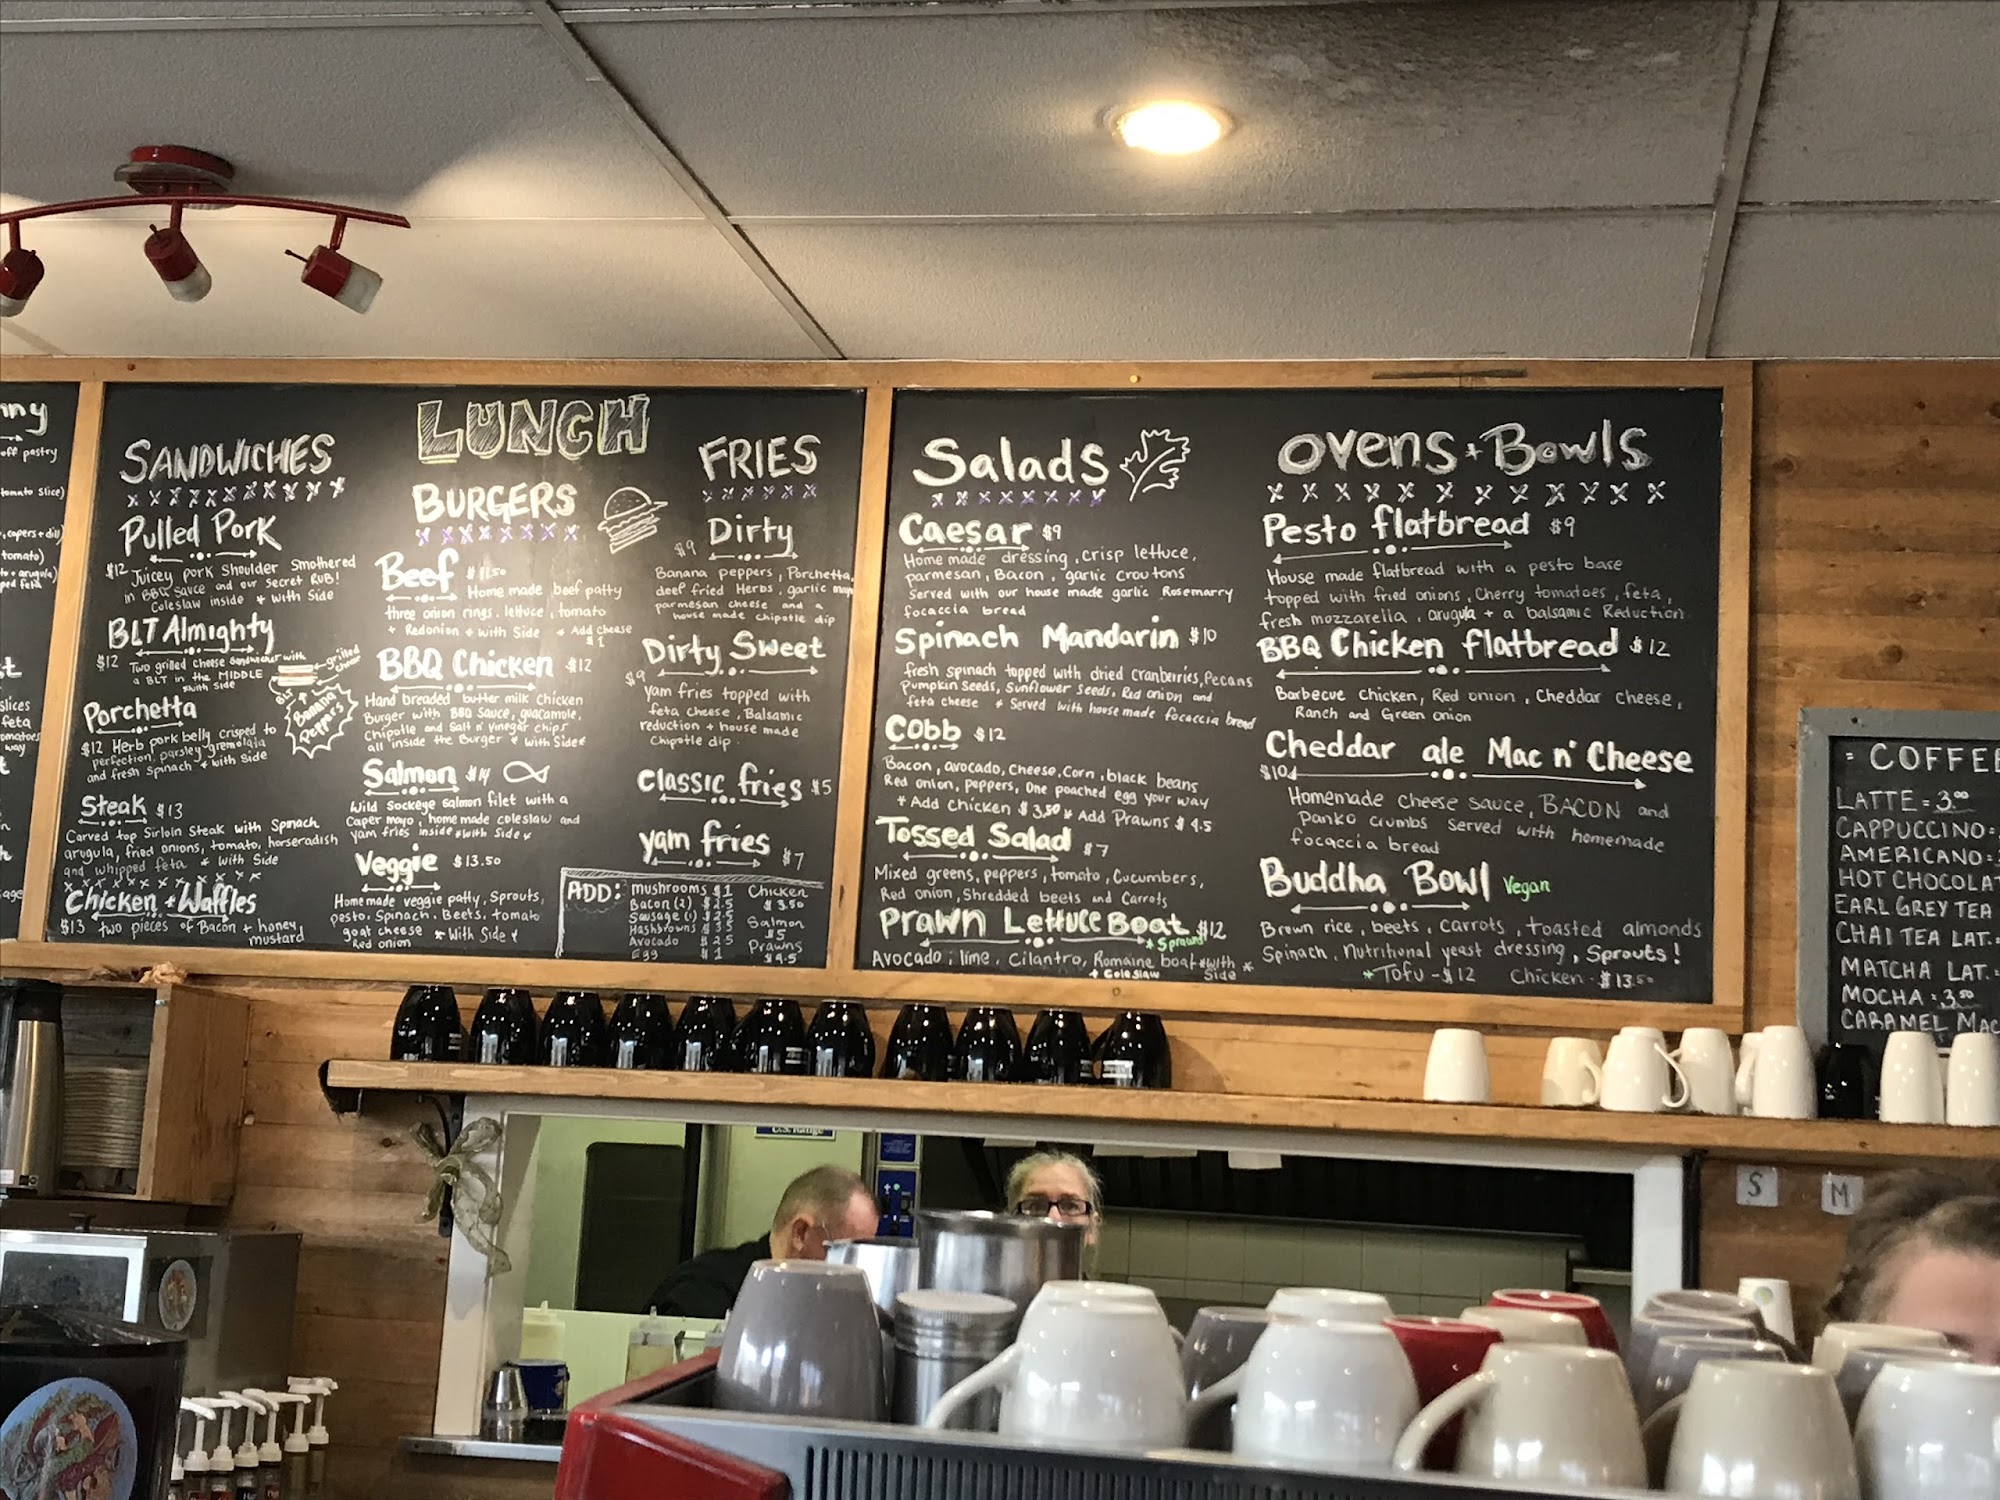 nny
off pastry
tomato slice)
, capers + dill)
tomato)
to + arugula)
ped feta
t
slices
feta
omatoes
way
LUNCH
SANDWICHES
Pulled Pork
$12 Juicey pork shoulder smothered
in BBQ sauce and our secret RUB!
Coleslaw inside * with side
BLT Almighty
$12 Two grilled cheese sandwiches with
a BLT in the MIDDLE
*with side
grilled
cheese
BLT
Banana
Peppers
Porchetta
$12 Herb pork belly crisped to
perfection, parsley gremolata
and fresh spinach * with side
Steak $13
Carved top Sirloin Steak with Spinach
arugula, fried onions, tomato, horseradish
and whipped feta * with side
Chicken + Waffles
$13 two pieces of Bacon + honey
mustard
BURGERS
Beef $11.50
Home made beef patty
three onion rings, lettuce, tomato
+ Red onion * with side * Add cheese
$1
BBQ Chicken $12
Hand breaded butter milk chicken
Burger with BBQ sauce, guacamole,
chipotle and salt n' vinegar chips
all inside the Burger * with side*
Salmon $14
Wild Sockeye salmon filet with a
caper mayo, home made coleslaw and
yam fries inside *with side*
Veggie $13.50
Home made veggie patty, sprouts,
pesto, spinach, beets, tomato
goat cheese * with side *
Red onion
FRIES
Dirty
$9
Banana peppers, Porchetta,
deef fried Herbs, garlic mayo
parmesan cheese and a
house made chipotle dip
Dirty Sweet
$9
Yam fries topped with
feta cheese, Balsamic
reduction + house made
Chipotle dip.
Classic fries $5
yam fries $7
ADD: mushrooms $1
Bacon (2) $2.5
Sausage (1) $2.5
Hashbrowns $3.5
Avocado $2.5
Egg $1
Chicken
$3.50
Salmon
$5
Prawns
$4.5
Salads
Caesar $9
Home made dressing, crisp lettuce,
parmesan, Bacon, garlic croutons
Served with our house made garlic Rosemarry
focaccia bread
Spinach Mandarin $10
fresh spinach topped with dried cranberries, Pecans
Pumpkin seeds, Sunflower seeds, Red onion and
feta cheese * Served with house made focaccia bread
Cobb $12
Bacon, avocado, cheese, corn, black beans
Red onion, peppers, one poached egg your way
* Add chicken $3.50 * Add Prawns $4.5
Tossed Salad $7
Mixed greens, peppers, tomato, cucumbers,
Red onion, Shredded beets and Carrots
Prawn Lettuce Boat $12
* 5 prawns
Avocado, lime, Cilantro, Romaine boat *with *
+ coleslaw side
Ovens + Bowls
Pesto flatbread $9
House made flatbread with a pesto base
topped with fried onions, Cherry tomatoes, feta,
fresh mozzarella, arugula + a balsamic Reduction
BBQ Chicken flatbread $12
Barbecue chicken, Red onion, Cheddar cheese,
Ranch and Green onion
Cheddar ale Mac n' Cheese
$10
Homemade cheese sauce, BACON and
panko crumbs served with homemade
focaccia bread
Buddha Bowl Vegan
Brown rice, beets, carrots, toasted almonds
Spinach, Nutritional yeast dressing, Sprouts!
* Tofu - $12 Chicken - $13.50
= COFFEE
LATTE = 3.00
CAPPUCCINO =
AMERICANO =
HOT CHOCOLAT
EARL GREY TEA
CHAI TEA LAT. =
MATCHA LAT. =
MOCHA = 3.50
CARAMEL MAC
S
M